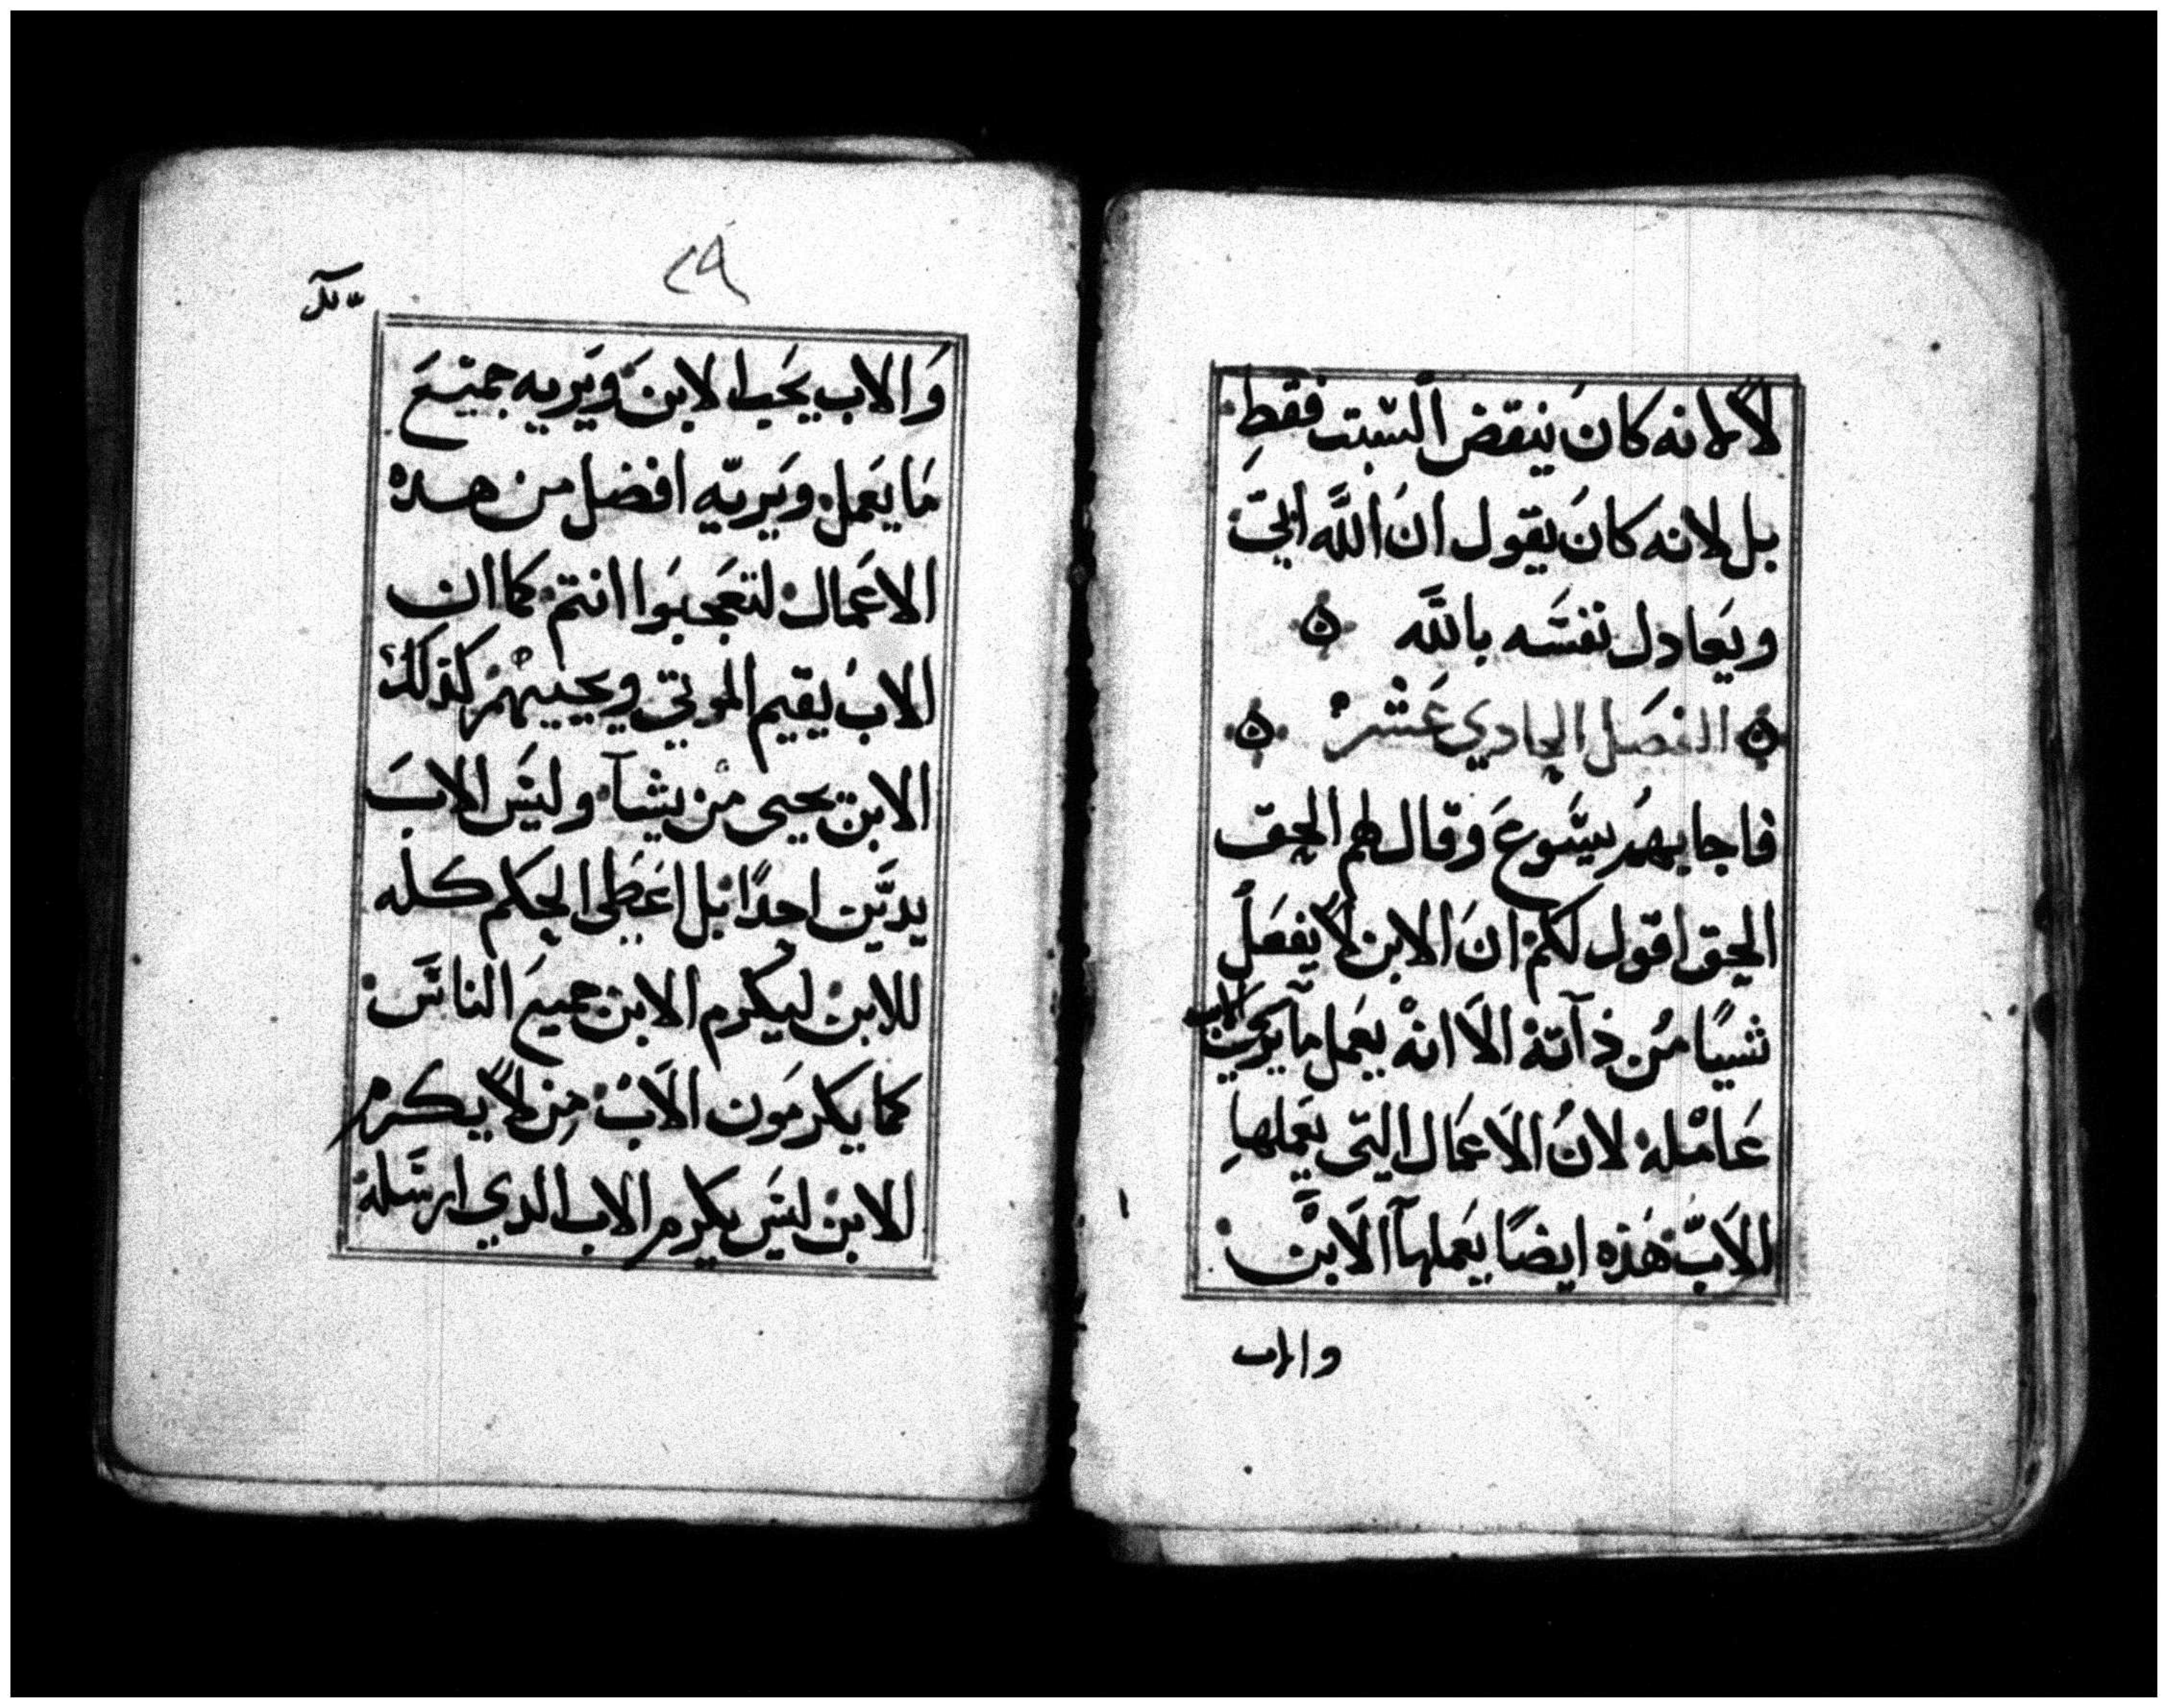 لا لانه كان ينقض السبت فقط
بل لانه كان يقول ان الله ابي
ويعادل نفسه بالله
الفصل الحادي عشر
فاجابهم يسوع وقال لهم الحق
الحق اقول لكم ان الابن لا يفعل
شيًا من ذاته الا انه يعمل ما يري الاب
عامله لان الاعمال التي يعملها
الاب هذه ايضًا يعملها الابن
والاب
٢٩
والاب يحب الابن ويريه جميع
ما يعمل ويريه افضل من هده
الاعمال لتعجبوا انتم كما ان
الاب يقيم الموتي ويحييهم كذلك
الابن يحيي من يشآ وليس الاب
يدين احدًا بل اعطي الحكم كله
للابن ليكرم الابن جميع الناس
كما يكرمون الاب من لا يكرم
الابن ليس يكرم الاب الدي ارسله